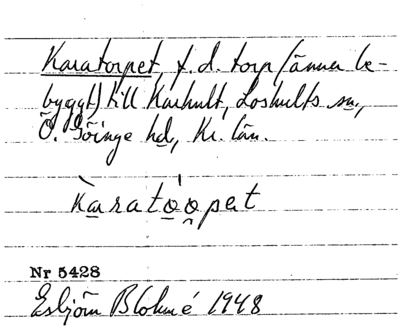 Karatorpet, f. d. torp (ännu be-
byggt) till Karhult, Loshults sn.,
Ö. Göinge hd, Kr. län.
kàrató̀o̯pət
Nr 5428
Esbjörn Blohmé 1948